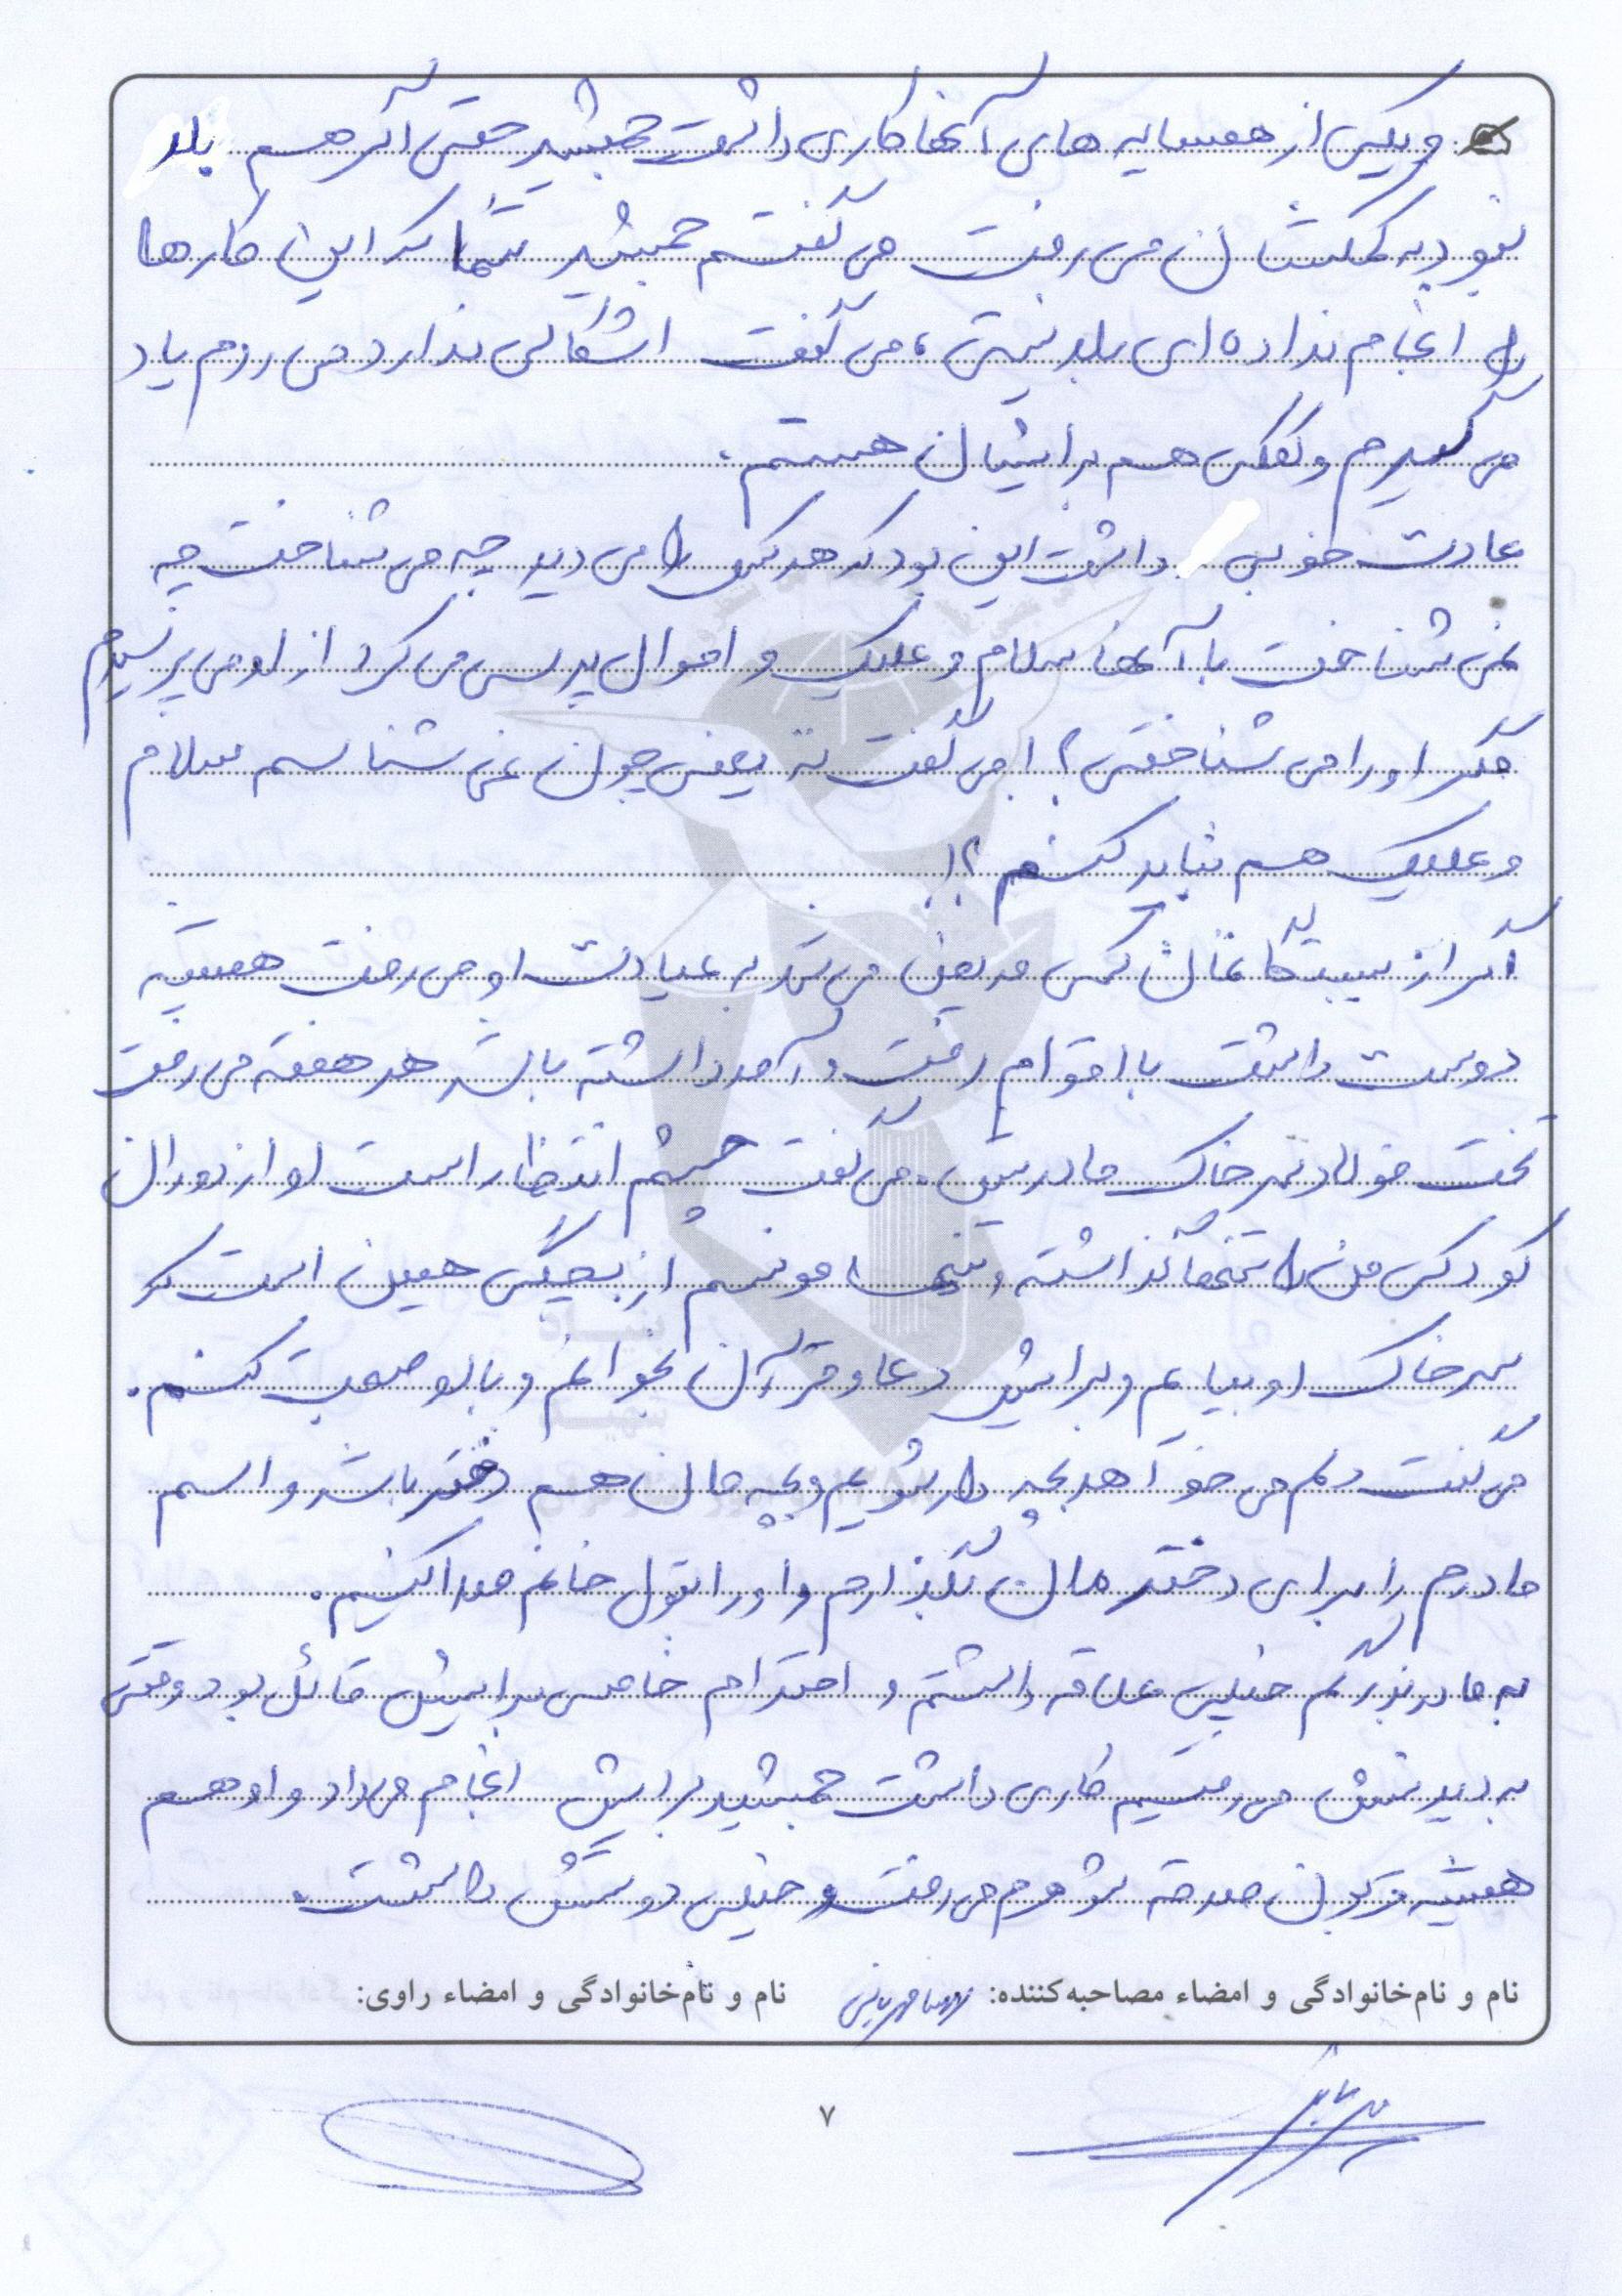 و یکی از همسایه های آنها کاری داشت جمشید حتی اگر هم بلد
نبود به کمکشان می رفت می گفتم جمشید شما که این کارها
را انجام نداده ای بلد نیستی، می گفت اشکالی ندارد می روم یاد
می گیرم و کمکی هم برایشان هستم.
عادت خوبی داشت این بود که هر کس را می دید چه می شناخت چه
نمی شناخت با آنها سلام و علیک و احوال پرسی می کرد از او می پرسیدم
مگر او را می شناختی؟! می گفت نه یعنی چون نمی شناسم سلام
و علیک هم نباید کنم؟!
اگر از بستگانمان کسی مریض می شد به عیادت او می رفت همیشه
دوست داشت با اقوام رفت و آمد داشته باشد هر هفته می رفت
تخت فولاد سر خاک مادرش. می گفت چشم انتظار است او از دوران
کودکی من را تنها گذاشته و تنها مونسم از بچگی همین است که
سر خاک او بیایم و برایش دعا و قرآن بخوانم و با او صحبت کنم.
می گفت دلم می خواهد بچه دار شویم و بچه مان هم دختر باشد و اسم
مادرم را برای دخترمان بگذارم و او را بتول خانم صدا کنیم.
به مادربزرگم خیلی علاقه داشتم و احترام خاصی برایش قائل بود وقتی
به دیدنش می رفتیم کاری داشت جمشید برایش انجام می داد و او هم
همیشه قربان صدقه شوهرم می رفت و خیلی دوستش داشت.
نام و نام‌خانوادگی و امضاء مصاحبه‌کننده: نام و نام‌خانوادگی و امضاء راوی:
۷